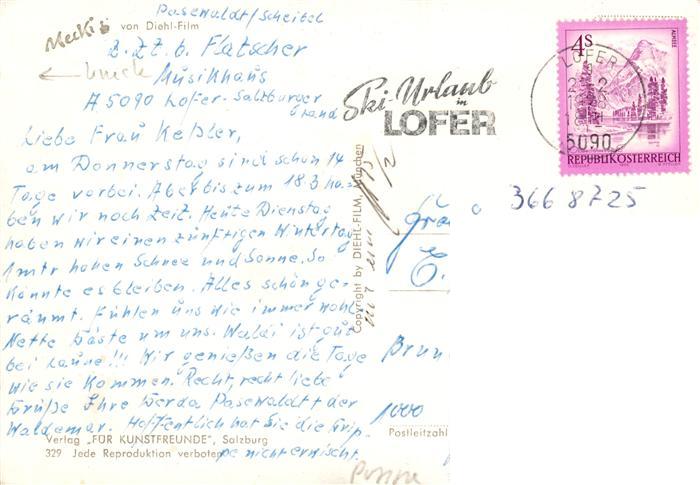 Pasewaldt/Scheibel
Mecki's von Diehl-Film
z.Zt. b. Flatscher
Musikhaus
A 5090 Lofer-Salzburger
Land
Liebe Frau Keßler,
am Donnerstag sind schon 14
Tage vorbei. Aber bis zum 18.3 ha-
ben wir noch Zeit. Heute Dienstag
haben wir einen zünftigen Wintertag
1 mtr hohen Schnee und Sonne. So
könnte es bleiben. Alles schön ge-
räumt. Fühlen uns wie immer wohl
Nette Gäste um uns. Waldi ist gut
bei Laune!!! Wir genießen die Tage
wie sie kommen. Recht, recht liebe
Grüße Ihre Gerda Pasewaldt + der
Waldemar. Hoffentlich hat Sie die Grip-
pe nicht erwischt.
Verlag "FÜR KUNSTFREUNDE", Salzburg
329 Jede Reproduktion verboten
Copyright by DIEHL-FILM, München
Ski-Urlaub
in
LOFER
LOFER
5090
4S
ALMSEE
REPUBLIK ÖSTERREICH
366 8725
E.
Brun
1000
Postleitzahl